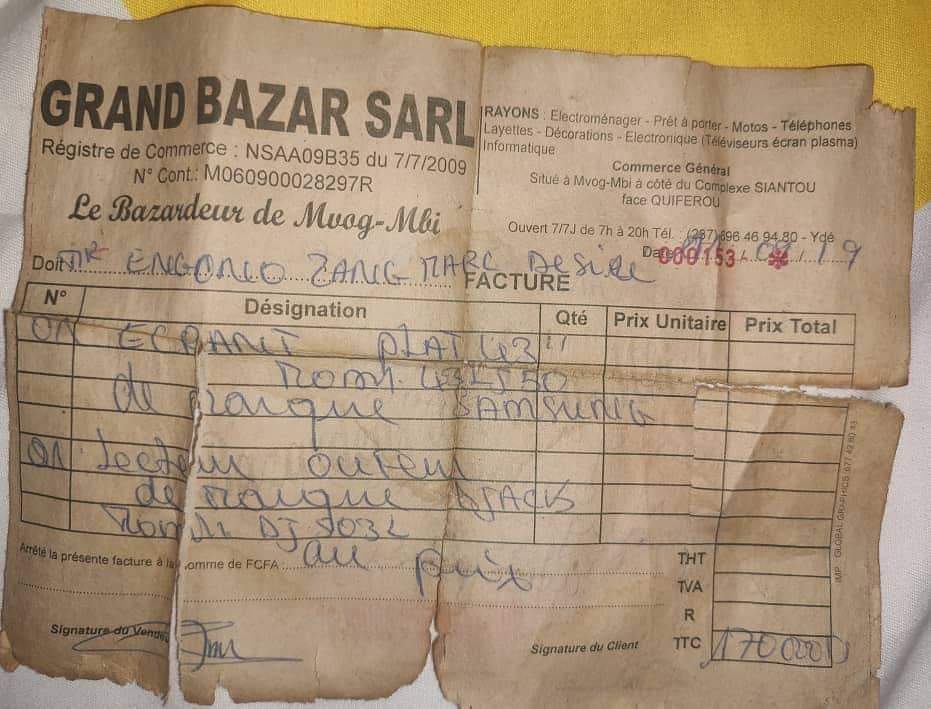 GRAND BAZAR SARL
Régistre de Commerce : NSAA09B35 du 7/7/2009
N° Cont.: M060900028297R
Le Bazardeur de Mvog-Mbi
RAYONS : Electroménager - Prêt à porter - Motos - Téléphones
Layettes - Décorations - Electronique (Téléviseurs écran plasma)
Informatique
Commerce Général
Situé à Mvog-Mbi à côté du Complexe SIANTOU
face QUIFEROU
Ouvert 7/7J de 7h à 20h Tél. : (237) 696 46 94 80 - Ydé
Date 000153 19
Doit Mr ZANG MARC DESIRE
FACTURE
N° Désignation Qté Prix Unitaire Prix Total
01 ECRANT PLAT 43"
de marque SAMSUNG
01 Lecteur
de marque
au prix
Arrêté la présente facture à la somme de FCFA :
THT
TVA
R
TTC 170000
Signature du Vendeu
Signature du Client
IMP. GLOBAL GRAPHICS 677 42 80 43